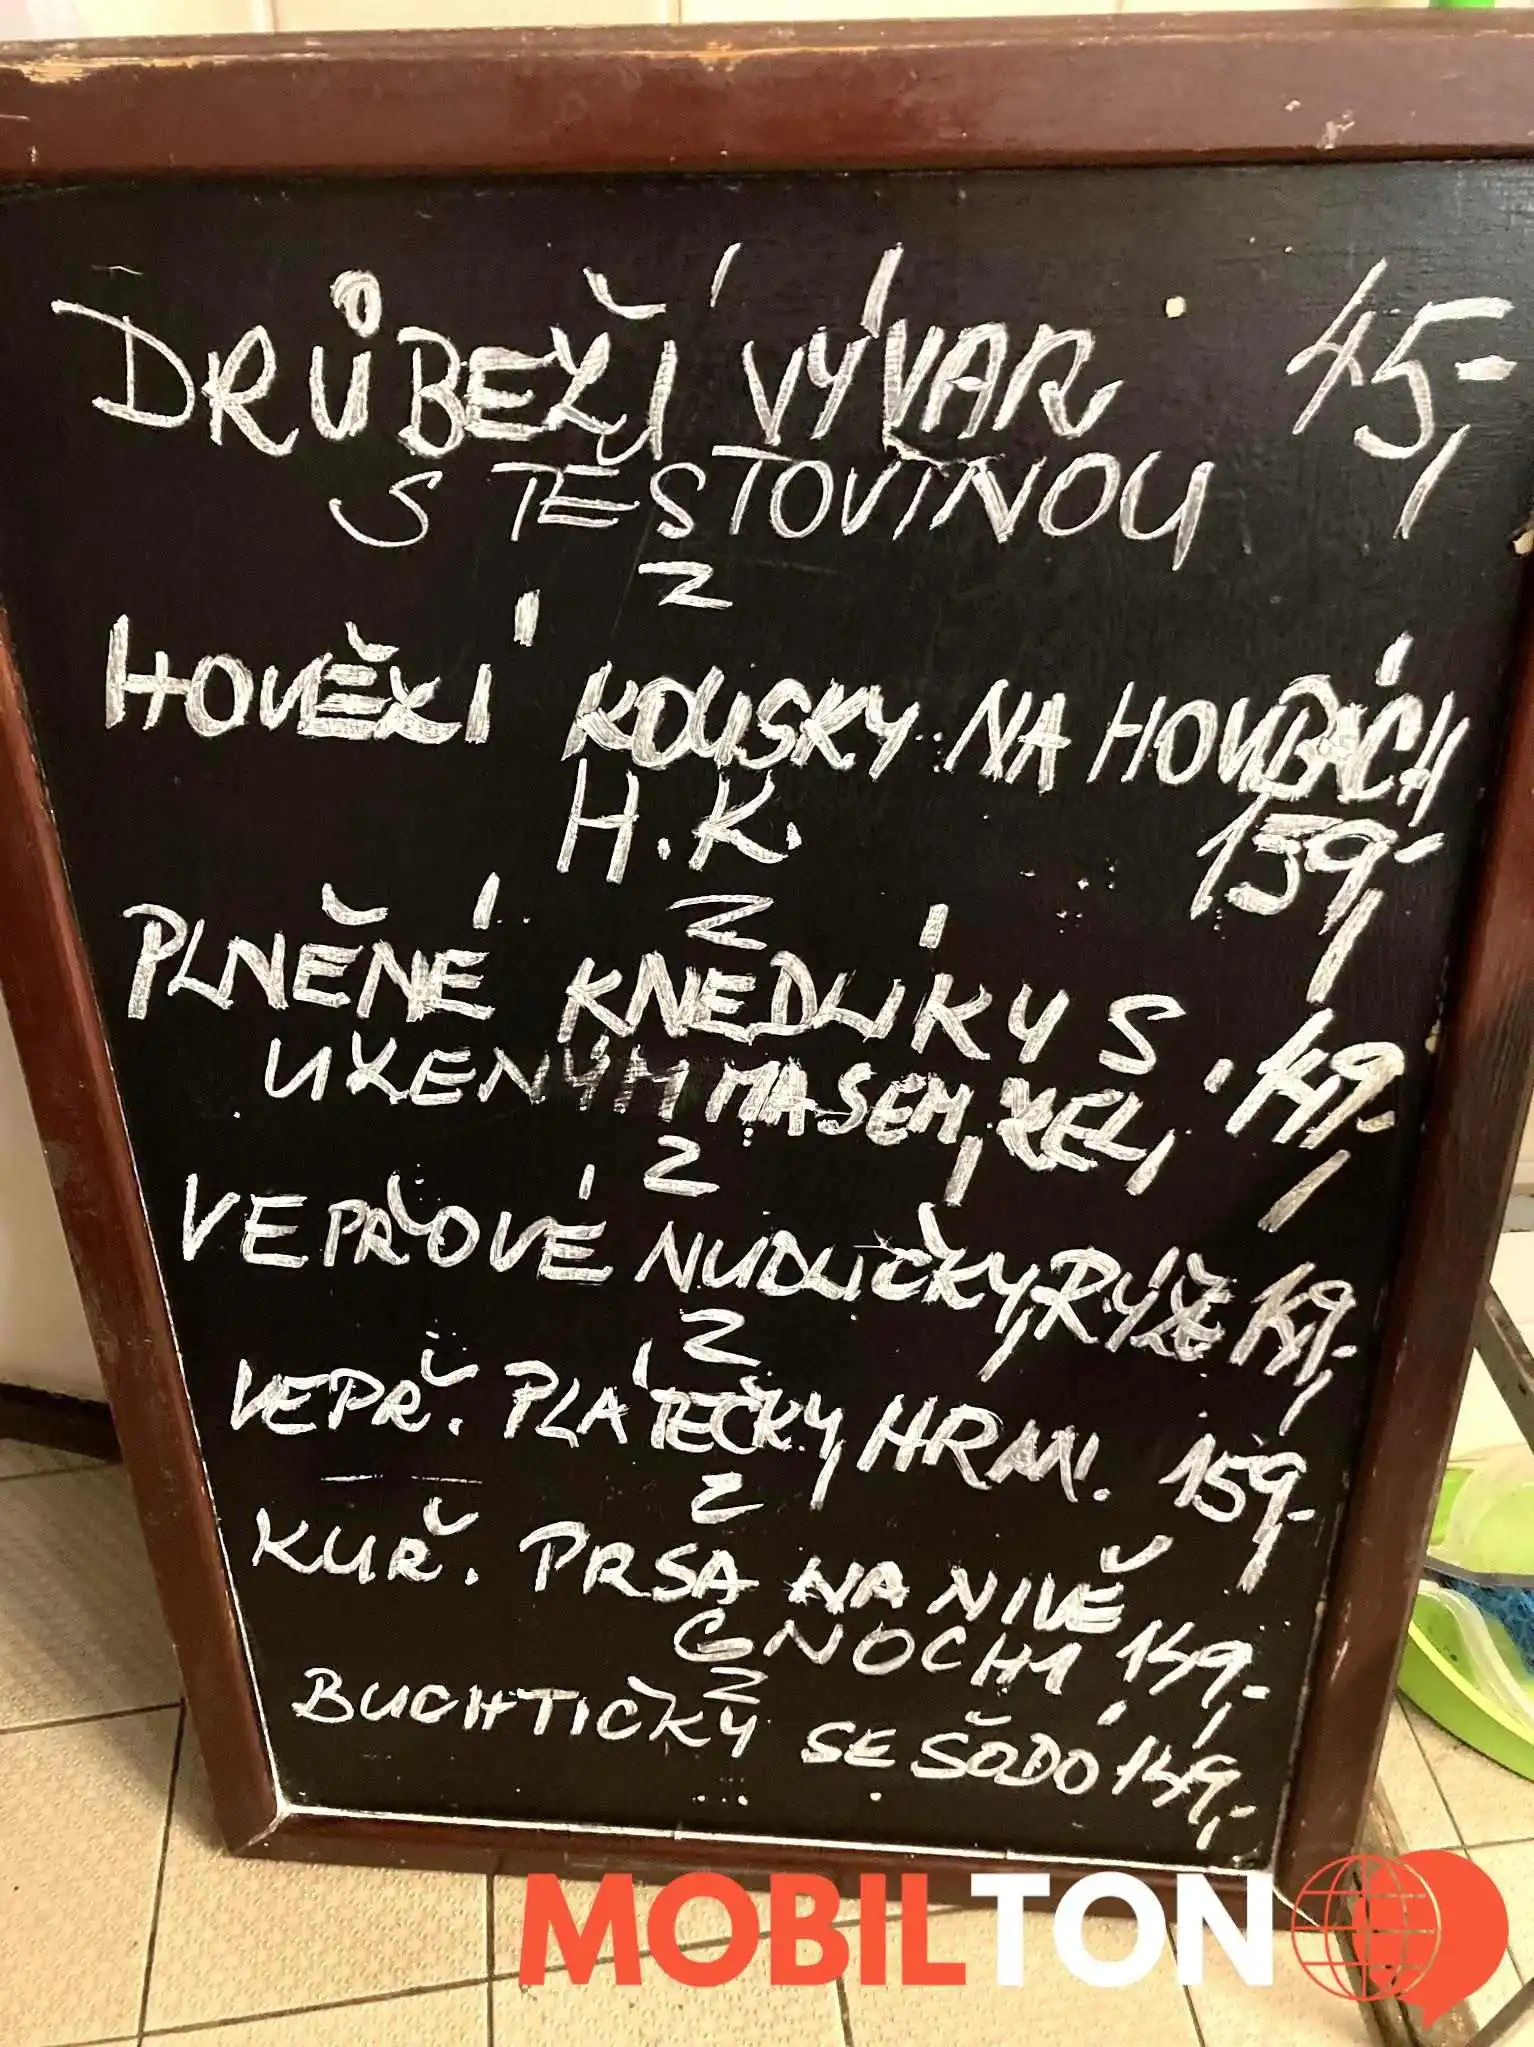 DRŮBEŽÍ VÝVAR 45,-
S TĚSTOVINOU
Z
HOVĚZÍ KOUSKY NA HOUBÁCH
H.K. 159,-
Z
PLNĚNÉ KNEDLÍKY S
UZENÝM MASEM, ZEL, 149,-
Z
VEPŘOVÉ NUDLIČKY, RÝŽE 149,-
Z
VEPŘ. PLÁTEČKY, HRAN. 159,-
Z
KUŘ. PRSA NA NIVĚ
GNOCHI 149,-
Z
BUCHTIČKY SE ŠODÓ 149,-
MOBILTON